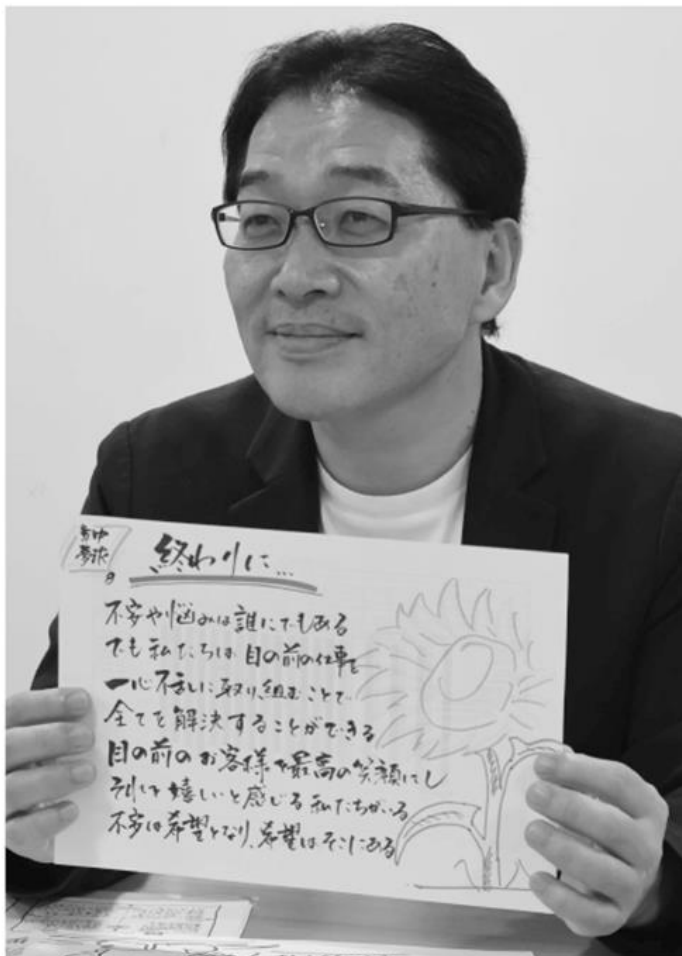 夢中
夢求
終わりに…
不安や悩みは誰にでもある
でも私たちは目の前の仕事を
一心不乱に取り組むことで
全てを解決することができる
目の前のお客様を最高の笑顔にし
それを嬉しいと感じる私たちがいる
不安は希望となり、希望はそこにある